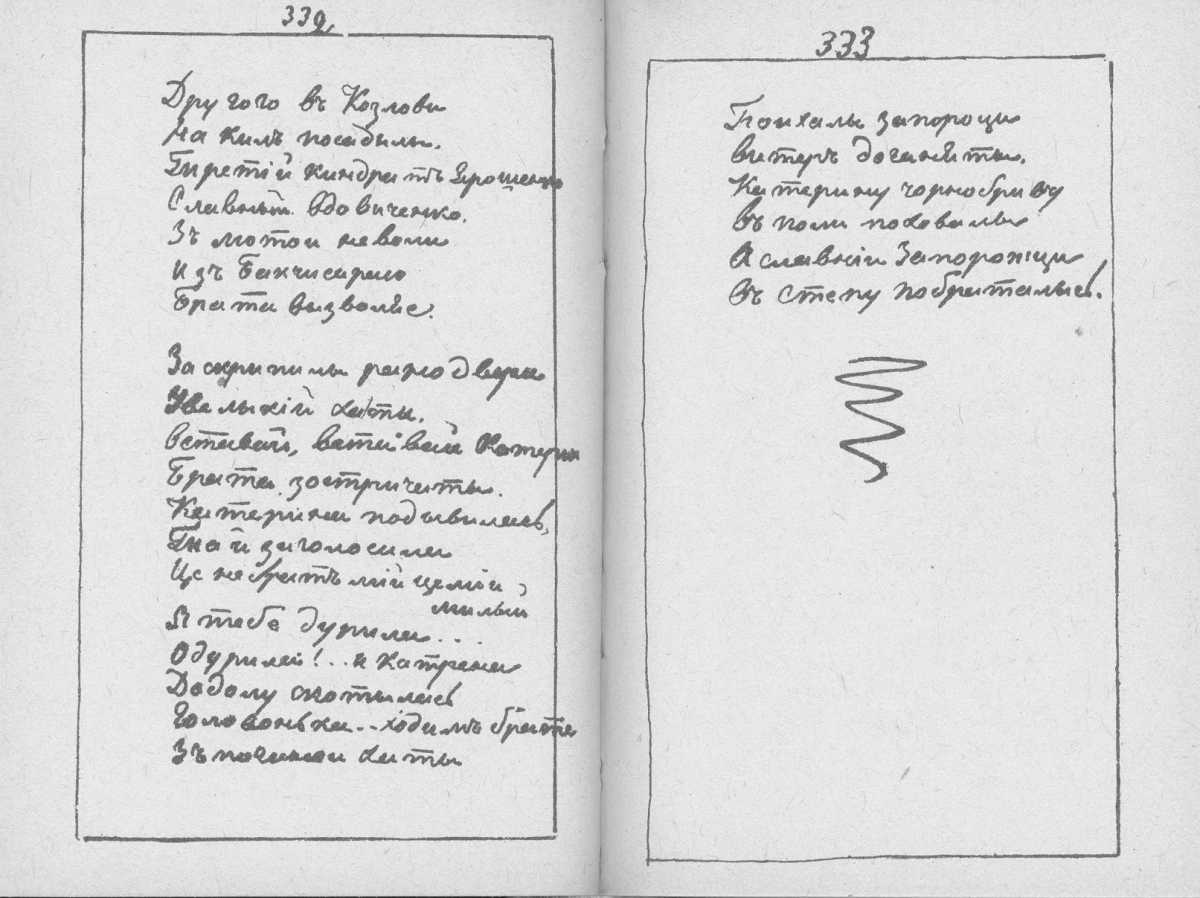 332
Другого въ Козлови
На килъ посадылы.
Третій Киндратъ Ярошенко
Славный Вдовиченко.
Зъ лютои неволи
Изъ Бакчисараю
Брата вызволяе.
Заскрыпилы рано двери
У велыкій хаты.
Вставай, вставай Катерын
Брата зостричаты.
Катерына подывылась,
Та й заголосила
Це не братъ мій це мій
милый
Я тебе дурила...
Одурила!.. и Катрена
Додолу скотылась
Головонька.. ходимъ брате
Зъ поганои хаты
333
Поихалы запорозци
витеръ доганяты.
Катерину чорнобриву
въ поли поховалы
А славніи Запорожци
въ степу побраталысь.